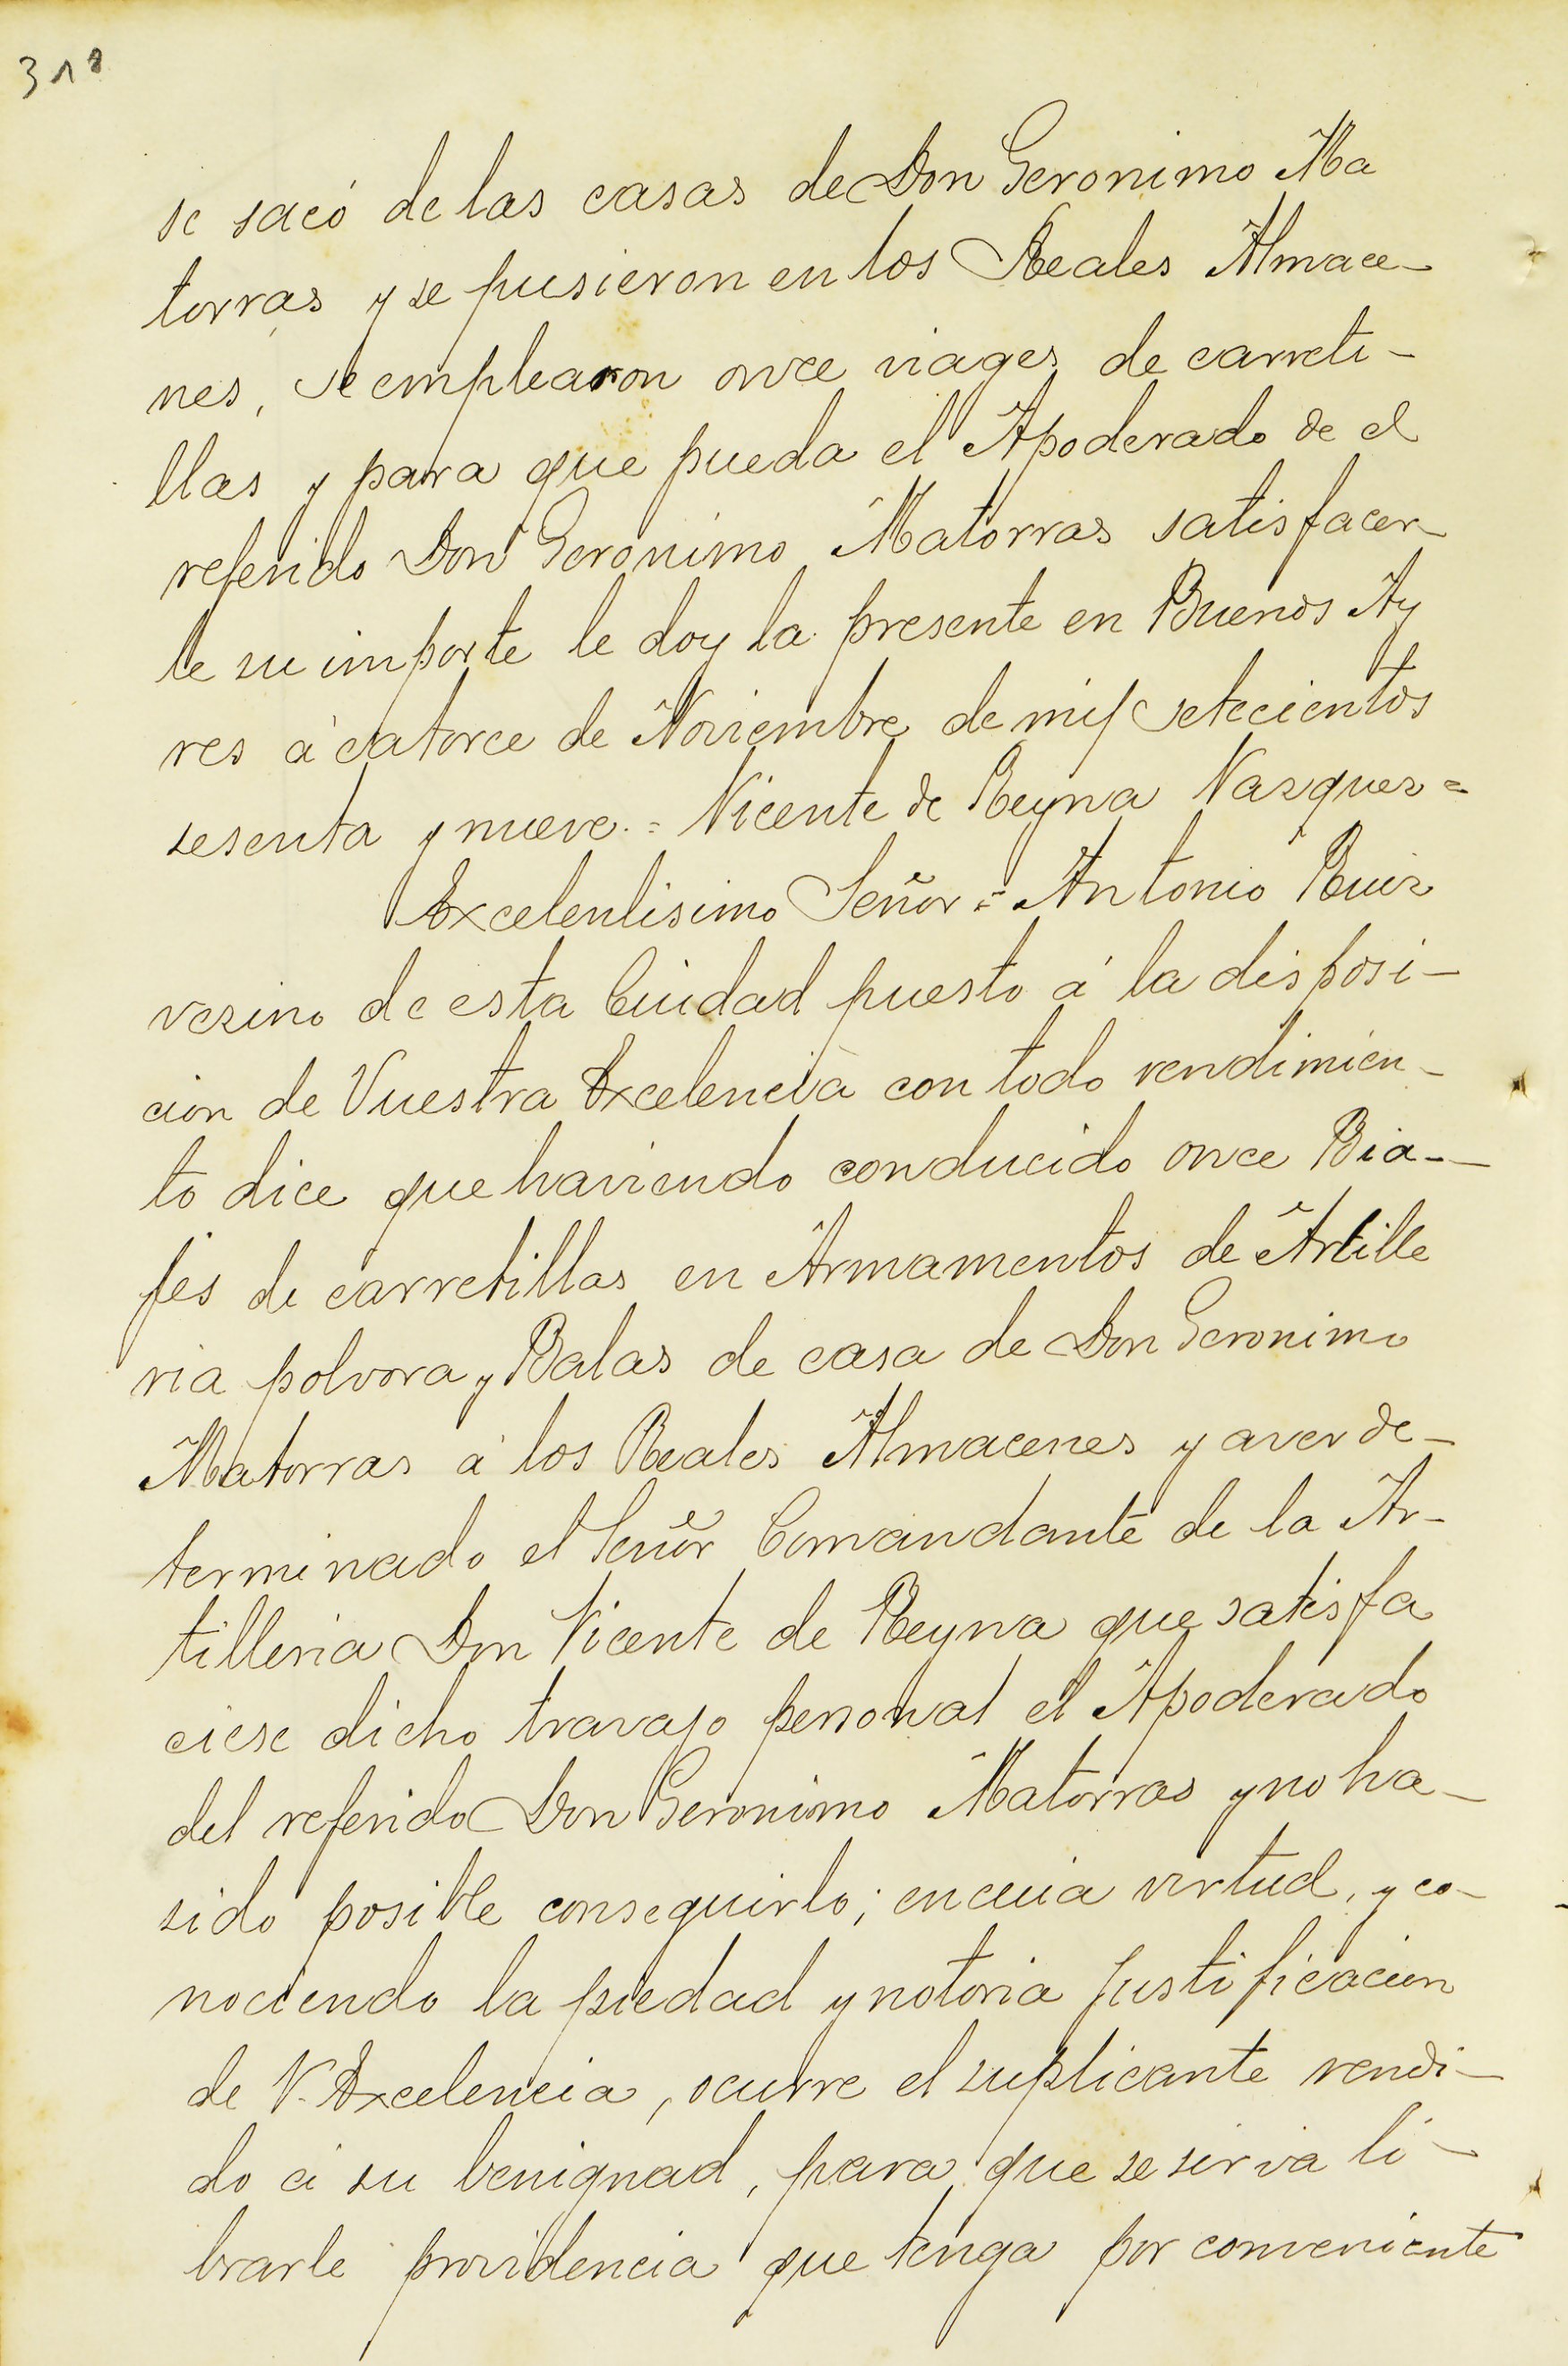 318
se sacó de las casas de Don Geronimo Ma
torras y se pusieron en los Reales Almace-
nes, se emplearon once viages de carreti-
llas y para que pueda el Apoderado de el
referido Don Geronimo Matorras satisfacer
le su importe le doy la presente en Buenos Ay
res á catorce de Noviembre de mil setecientos
sesenta y nueve. = Vicente de Reyna Vazquez =
Excelentisimo Señor = Antonio Ruiz
vezino de esta Ciudad puesto á la disposi-
cion de Vuestra Excelencia con todo rendimien-
to dice que haviendo conducido once Bia-
jes de carretillas en Armamentos de Artille
ria polvora y Balas de casa de Don Geronimo
Matorras á los Reales Almacenes y aver de-
terminado el Señor Comandante de la Ar-
tilleria Don Vicente de Reyna que satisfa
ciese dicho travajo personal el Apoderado
del referido Don Geronimo Matorras y no ha-
sido posible conseguirlo; en cuia virtud, y co-
nociendo la piedad y notoria Justificacion
de V. Excelencia, ocurre el suplicante rendi-
do á su benignad, para que se sirva li-
brarle providencia que tenga por conveniente